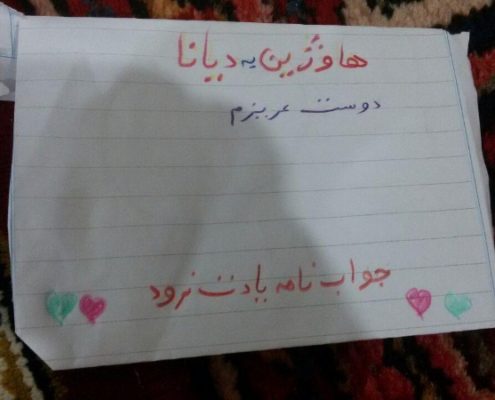 هاوژین به دیانا
دوست عزیزم
جواب نامه یادت نرود